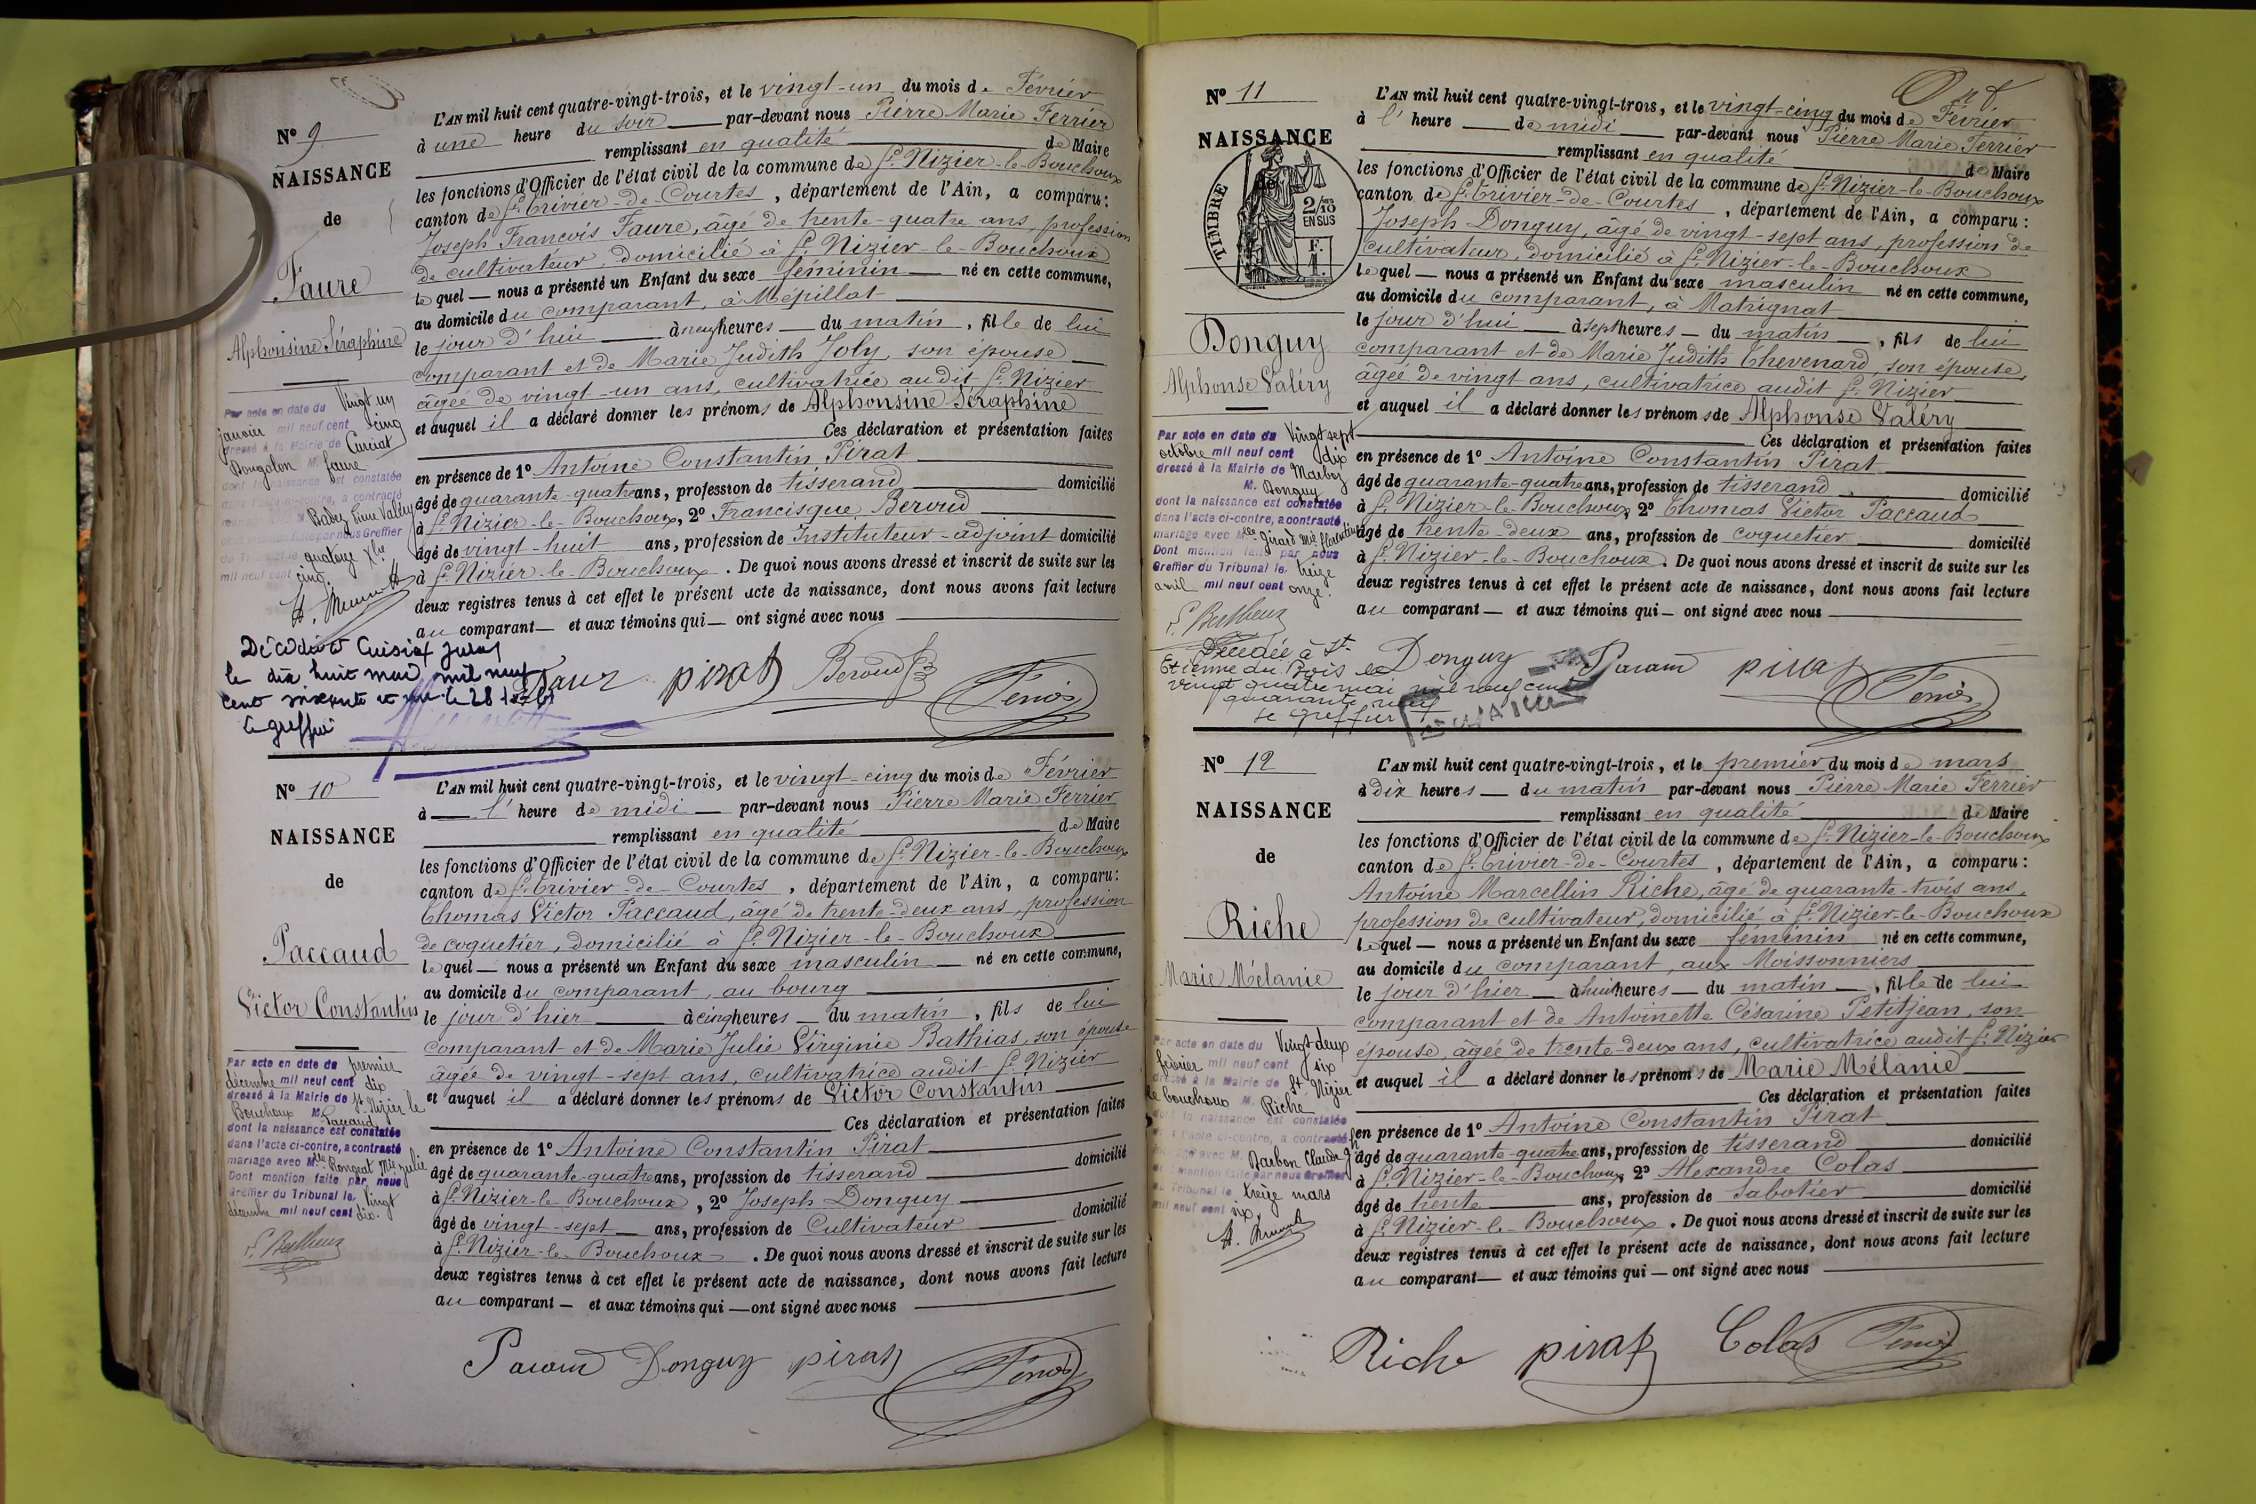 Nº 9
NAISSANCE
de
Faure
Alphonsine Séraphine
Par acte en date du Vingt un
janvier mil neuf cent cinq
dressé à la Mairie de Curciat
Dongalon M. Faure
dont la naissance est constatée
dans l'acte ci-contre, a contracté
quatorze Xbre
mil neuf cent cinq.
L'AN mil huit cent quatre-vingt-trois, et le vingt-un du mois de Février
à une heure du soir par-devant nous Pierre Marie Ferrier
remplissant en qualité de Maire
les fonctions d'Officier de l'état civil de la commune de St. Nizier-le-Bouchoux
canton de St. Trivier-de-Courtes, département de l'Ain, a comparu:
Joseph François Faure, âgé de trente-quatre ans, profession
de cultivateur domicilié à St. Nizier-le-Bouchoux
lequel nous a présenté un Enfant du sexe féminin né en cette commune,
au domicile du comparant, à Mépillat
le jour d'hui à neuf heures du matin, fille de lui
comparant et de Marie Judith Joly, son épouse
âgée de vingt-un ans, cultivatrice audit St. Nizier
et auquel il a déclaré donner les prénoms de Alphonsine Séraphine
Ces déclaration et présentation faites
en présence de 1º Antoine Constantin Pirat
âgé de quarante-quatre ans, profession de tisserand domicilié
à St. Nizier-le-Bouchoux, 2º Francisque Beroud
âgé de vingt-huit ans, profession de Instituteur-adjoint domicilié
à St. Nizier-le-Bouchoux. De quoi nous avons dressé et inscrit de suite sur les
deux registres tenus à cet effet le présent acte de naissance, dont nous avons fait lecture
au comparant et aux témoins qui ont signé avec nous
le dix huit mai mil neuf
Le greffier
Faure pirat Beroud
Nº 10
NAISSANCE
de
Paccaud
Victor Constantin
Par acte en date du premier
décembre mil neuf cent dix
dressé à la Mairie de St. Nizier le
Bouchoux M. Paccaud
dont la naissance est constatée
dans l'acte ci-contre, a contracté
mariage avec Mlle Rongeat Mie Julie
Dont mention faite par nous
Greffier du Tribunal le vingt
décembre mil neuf cent dix.
L'AN mil huit cent quatre-vingt-trois, et le vingt-cinq du mois de Février
à l'heure de midi par-devant nous Pierre Marie Ferrier
remplissant en qualité de Maire
les fonctions d'Officier de l'état civil de la commune de St. Nizier-le-Bouchoux
canton de St. Trivier-de-Courtes, département de l'Ain, a comparu:
Thomas Victor Paccaud, âgé de trente-deux ans, profession
de coquetier, domicilié à St. Nizier-le-Bouchoux
lequel nous a présenté un Enfant du sexe masculin né en cette commune,
au domicile du comparant, au bourg
le jour d'hier à cinq heures du matin, fils de lui
comparant et de Marie Julie Virginie Bathias, son épouse
âgée de vingt-sept ans, cultivatrice audit St. Nizier
et auquel il a déclaré donner les prénoms de Victor Constantin
Ces déclaration et présentation faites
en présence de 1º Antoine Constantin Pirat
âgé de quarante-quatre ans, profession de tisserand domicilié
à St. Nizier-le-Bouchoux, 2º Joseph Donguy
âgé de vingt-sept ans, profession de Cultivateur domicilié
à St. Nizier-le-Bouchoux. De quoi nous avons dressé et inscrit de suite sur les
deux registres tenus à cet effet le présent acte de naissance, dont nous avons fait lecture
au comparant et aux témoins qui ont signé avec nous
Donguy pirat
Nº 11
NAISSANCE
TIMBRE
2/10 EN SUS
Donguy
Alphonse Valéry
Par acte en date du Vingt sept
octobre mil neuf cent dix
dressé à la Mairie de Marboz
M. Donguy
dont la naissance est constatée
dans l'acte ci-contre, a contracté
mariage avec Mlle Girard Mie Florentine
Dont mention faite par nous
Greffier du Tribunal le treize
avril mil neuf cent onze.
Décédée à St
Etienne du Bois le
vingt quatre mai mil neuf cent
quarante neuf
Le greffier
L'AN mil huit cent quatre-vingt-trois, et le vingt-cinq du mois de Février
à l'heure de midi par-devant nous Pierre Marie Ferrier
remplissant en qualité de Maire
les fonctions d'Officier de l'état civil de la commune de St. Nizier-le-Bouchoux
canton de St. Trivier-de-Courtes, département de l'Ain, a comparu:
Joseph Donguy, âgé de vingt-sept ans, profession de
cultivateur, domicilié à St. Nizier-le-Bouchoux
lequel nous a présenté un Enfant du sexe masculin né en cette commune,
au domicile du comparant, à Matrignat
le jour d'hui à sept heures du matin, fils de lui
comparant et de Marie Judith Thevenard, son épouse,
âgée de vingt ans, cultivatrice audit St. Nizier
et auquel il a déclaré donner les prénoms de Alphonse Valéry
Ces déclaration et présentation faites
en présence de 1º Antoine Constantin Pirat
âgé de quarante-quatre ans, profession de tisserand domicilié
à St. Nizier-le-Bouchoux, 2º Thomas Victor Paccaud
âgé de trente-deux ans, profession de coquetier domicilié
à St. Nizier-le-Bouchoux. De quoi nous avons dressé et inscrit de suite sur les
deux registres tenus à cet effet le présent acte de naissance, dont nous avons fait lecture
au comparant et aux témoins qui ont signé avec nous
Donguy pirat
Nº 12
NAISSANCE
de
Riche
Marie Mélanie
Par acte en date du Vingt deux
février mil neuf cent six
dressé à la Mairie de St. Nizier
le bouchoux M. Riche
dont la naissance est constatée
dans l'acte ci-contre, a contracté
mariage avec M. Barbon Claude
treize mars
mil neuf cent six
L'AN mil huit cent quatre-vingt-trois, et le premier du mois de mars
à dix heures du matin par-devant nous Pierre Marie Ferrier
remplissant en qualité de Maire
les fonctions d'Officier de l'état civil de la commune de St. Nizier-le-Bouchoux
canton de St. Trivier-de-Courtes, département de l'Ain, a comparu:
Antoine Marcellin Riche, âgé de quarante-trois ans,
profession de cultivateur, domicilié à St. Nizier-le-Bouchoux
lequel nous a présenté un Enfant du sexe féminin né en cette commune,
au domicile du comparant, aux Moissonniers
le jour d'hier à huit heures du matin, fille de lui
comparant et de Antoinette Césarine Petitjean, son
épouse, âgée de trente-deux ans, cultivatrice audit St. Nizier
et auquel il a déclaré donner les prénoms de Marie Mélanie
Ces déclaration et présentation faites
en présence de 1º Antoine Constantin Pirat
âgé de quarante-quatre ans, profession de tisserand domicilié
à St. Nizier-le-Bouchoux, 2º Alexandre Colas
âgé de trente ans, profession de Sabotier domicilié
à St. Nizier-le-Bouchoux. De quoi nous avons dressé et inscrit de suite sur les
deux registres tenus à cet effet le présent acte de naissance, dont nous avons fait lecture
au comparant et aux témoins qui ont signé avec nous
Riche pirat Colas